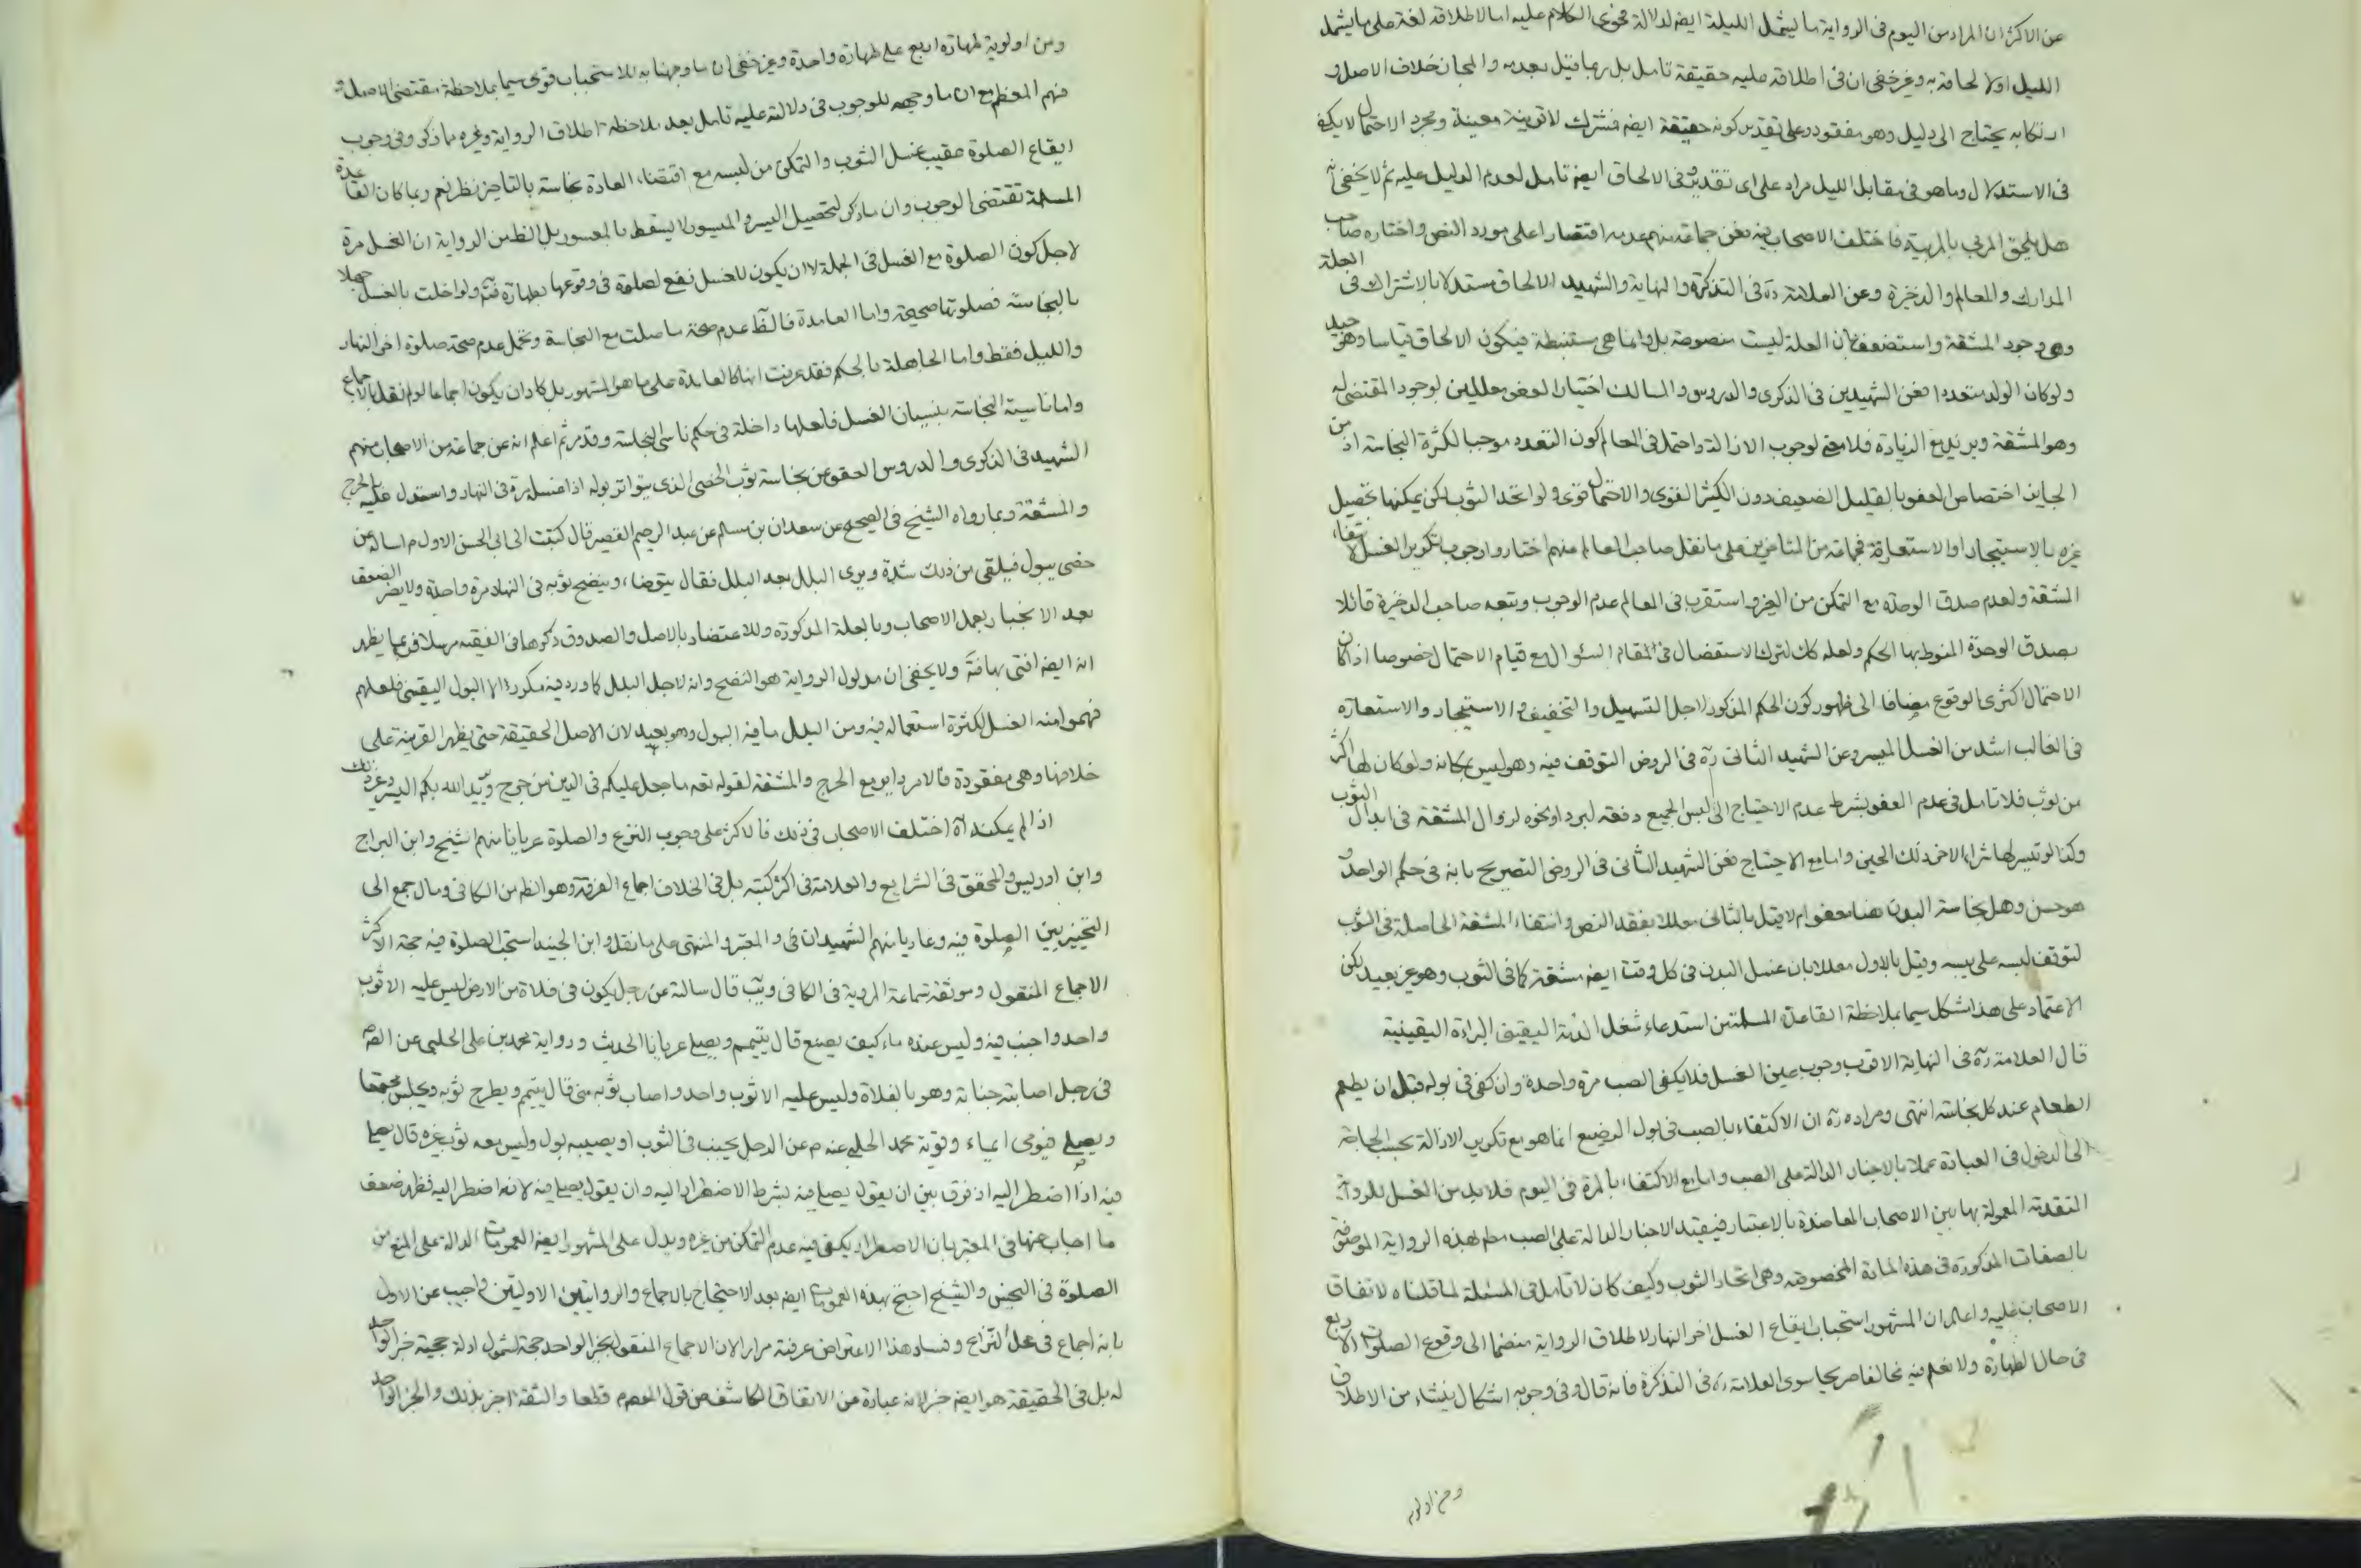 عن الاكثر ان المراد من اليوم فى الرواية ما يشمل الليلة ايضا لدلالة فحوى الكلام عليه اما لاطلاقه لغة على ما يشمل
الليل اولا لحاقه به وغير خفى ان فى اطلاقه عليه حقيقة تامل بل ربما قيل بعدمه والمجاز خلاف الاصل و
ارتكابه يحتاج الى دليل وهو مفقود وعلى تقدير كونه حقيقة ايضا فمشترك لا قرينة معينة ومجرد الاحتمال لا يكفى
فى الاستدلال وما هو فى مقابل الليل مراد على اى تقدير وفى الالحاق ايضا تامل لعدم الدليل عليه ثم لا يخفى انه
هل يلحق المربى بالمربية فاختلف الاصحاب فيه فعن جماعة منهم عدمه اقتصارا على مورد النص واختاره صاحب
المدارك والمعالم والذخيرة وعن العلامة ره فى التذكرة والنهاية والشهيد الالحاق مستدلا بالاشتراك فى العلة
وهى وجود المشقة واستضعف بان العلة ليست منصوصة بل وانما هى مستنبطة فيكون الالحاق قياسا وهو جيد
ولو كان الولد متعددا فعن الشهيدين فى الذكرى والدروس والمسالك اختيار العفو معللين لوجود المقتضى له
وهو المشقة ويزيد مع الزيادة فلا معنى لوجوب الازالة واحتمل فى المعالم كون التعدد موجبا لكثرة النجاسة اذ من
الجايز اختصاص العفو بالقليل الضعيف دون الكثير القوى والاحتمال قوى ولو اتحد الثوب لكن يمكنها تحصيل
غيره بالاستيجار او الاستعارة فجماعة من المتاخرين على ما نقل صاحب المعالم منهم اختاروا وجوب تكوير الغسل لانتفاء
المشقة ولعدم صدق الوحدة مع التمكن من الغير واستقرب فى المعالم عدم الوجوب وتبعه صاحب الذخيرة قائلا
بصدق الوحدة المنوط بها الحكم ولعله كان لترك الاستفصال فى المقام السئوال مع قيام الاحتمال خصوصا اذا كان
الاحتمال اكثرى الوقوع مضافا الى ظهور كون الحكم المذكور لاجل التسهيل والتخفيف والاستيجار والاستعارة
فى الغالب اشد من الغسل الميسر وعن الشهيد الثانى ره فى الروض التوقف فيه وهو ليس بمكانه ولو كان لها اكثر
من ثوب فلا تامل فى عدم العفو بشرط عدم الاحتياج الى لبس الجميع دفعة لبرد او نحوه لزوال المشقة فى ابدال الثوب
وكذا لو تيسر لها شراء الاخر ذلك الحين واما مع الاحتياج فعن الشهيد الثانى فى الروض التصريح بانه فى حكم الواحد و
هو حسن وهل نجاسة البدن هنا معفو ام لا قيل بالثانى معللا بفقد النص وانتفاء المشقة الحاصلة فى الثوب
لتوقف لبسه على يبسه وقيل بالاول معللا بان غسل البدن فى كل وقت ايضا مشقة كما فى الثوب وهو غير بعيد لكن
الاعتماد على هذا مشكل سيما بملاحظة القاعدة المسلمة من استدعاء شغل الذمة اليقينى البراءة اليقينية
قال العلامة ره فى النهاية الاقرب وجوب عين الغسل فلا يكفى الصب مرة واحدة وان كفى فى بوله قبل ان يطعم
الطعام عند كل نجاسة انتهى ومراده ره ان الاكتفاء بالصب فى بول الرضيع انما هو مع تكرير الازالة بحسب الحاجة
الى الدخول فى العبادة عملا بالاخبار الدالة على الصب واما مع الاكتفاء بالمرة فى اليوم فلا بد من الغسل للرواية
المتقدمة المعمولة بها بين الاصحاب المعاضدة بالاعتبار فيقيد الاخبار الدالة على الصب بهذه الرواية الموصوفة
بالصفات المذكورة فى هذه المادة المخصوصة وهى اتحاد الثوب وكيف كان لا تامل فى المسئلة لما قلناه لاتفاق
الاصحاب عليه واعلم ان المشهور استحباب ايقاع الغسل اخر النهار لاطلاق الرواية منضما الى وقوع الصلوات الاربع
فى حال الطهارة ولا نعلم فيه مخالفا صريحا سوى العلامة ره فى التذكرة فانه قال وفى وجوبه اشكال ينشاء من الاطلاق
ومن اولوية
ومن اولوية طهارة اربع على طهارة واحدة وغير خفى ان ما وجهنا به للاستحباب قوى سيما بملاحظة مقتضى الاصل و
فهم المعظم مع ان ما وجهه للوجوب فى دلالته عليه تامل بعد ملاحظة اطلاق الرواية وغيره مما ذكر وفى وجوب
ايقاع الصلوة عقيب غسل الثوب والتمكن من لبسه مع اقتضاء العادة نجاسته بالتاخير نظر نعم ربما كان القاعدة
المسلمة تقتضى الوجوب وان ما ذكر لتحصيل اليسر والميسور لا يسقط بالمعسور بل الظ من الرواية ان الغسل مرة
لاجل كون الصلوة مع الغسل فى الجملة لا ان يكون للغسل نفع لصلوة فى وقوعها بطهارة فت ولو اخلت بالغسل جهلا
بالنجاسة فصلوتها صحيحة واما العامدة فالظ عدم صحة ما صلت مع النجاسة ويحتمل عدم صحة صلوة اخر النهار
والليل فقط واما الجاهلة بالحكم فقد عرفت انها كالعامدة على ما هو المشهور بل كاد ان يكون اجماعا لو لم نقل بالاجماع
واما ناسية النجاسة بنسيان الغسل فلعلها داخلة فى حكم ناسى النجاسة وقد مر ثم اعلم انه عن جماعة من الاصحاب منهم
الشهيد فى الذكرى والدروس العفو عن نجاسة ثوب الخصى الذى يتواتر بوله اذا غسل مرة فى النهار واستدل عليه بالحرج
والمشقة وبما رواه الشيخ فى الصحيح عن سعدان بن مسلم عن عبد الرحيم القصير قال كتبت الى ابى الحسن الاول م اساله عن
خصى يبول فيلقى من ذلك شدة ويرى البلل بعد البلل فقال يتوضاء وينضح ثوبه فى النهار مرة واحدة ولا يضر الضعف
بعد الانجبار بعمل الاصحاب وبالعلة المذكورة وللاعتضاد بالاصل والصدوق ذكرها فى الفقيه مرسلا فربما يظهر
انه ايضا افتى بها فتم ولا يخفى ان مدلول الرواية هو النضح وانه لاجل البلل كما ورد فيه مكررا لا البول اليقينى فلعلهم
فهموا منه الغسل لكثرة استعماله فيه ومن البلل ما فيه البول وهو بعيد لان الاصل الحقيقة حتى يظهر القرينة على
خلافها وهى مفقودة فالامر داير مع الحرج والمشقة لقوله تعه ما جعل عليكم فى الدين من حرج ويريد الله بكم اليسر وغير ذلك
اذا لم يمكنه اه اختلف الاصحاب فى ذلك فالاكثر على وجوب النزع والصلوة عريانا منهم الشيخ وابن البراج
وابن ادريس والمحقق فى الشرايع والعلامة فى اكثر كتبه بل فى الخلاف اجماع الفرقة وهو الظ من الكافى ومال جمع الى
التخيير بين الصلوة فيه وعاريا منهم الشهيدان فى والمعتبر والمنتهى على ما نقل وابن الجنيد استحب الصلوة فيه حجة الاكثر
الاجماع المنقول وموثقة سماعة المروية فى الكافى ويب قال سالته عن رجل يكون فى فلاة من الارض ليس عليه الا ثوب
واحد واجنب فيه وليس عنده ماء كيف يصنع قال يتيمم ويصلى عريانا الحديث ورواية محمد بن على الحلبى عن الصم
فى رجل اصابته جنابة وهو بالفلاة وليس عليه الا ثوب واحد واصاب ثوبه منى قال يتيمم ويطرح ثوبه ويجلس مجتمعا
ويصلى فيومى ايماء وقوية محمد الحلبى عنه م عن الرجل يجنب فى الثوب او يصيبه بول وليس معه ثوب غيره قال يصلى
فيه اذا اضطر اليه اذ فرق بين ان يقول يصلى فيه بشرط الاضطرار اليه وان يقول يصلى فيه لانه اضطر اليه فظهر ضعف
ما اجاب عنها فى المعتبر بان الاضطرار يكفى فيه عدم التمكن من غيره ويدل على المشهور ايضا العمومات الدالة على المنع من
الصلوة فى النجس والشيخ احتج بهذه العمومات ايضا بعد الاحتجاج بالاجماع والروايتين الاوليتين واجيب عن الاول
بانه اجماع فى محل النزاع وفساد هذا الاعتراض عرفته مرارا لان الاجماع المنقول بخبر الواحد حجة لشمول ادلة حجية خبر الواحد
له بل فى الحقيقة هو ايضا خبر لانه عبارة من الاتفاق الكاشف عن قول المعصوم قطعا والثقة اخبر بذلك والخبر الواحد